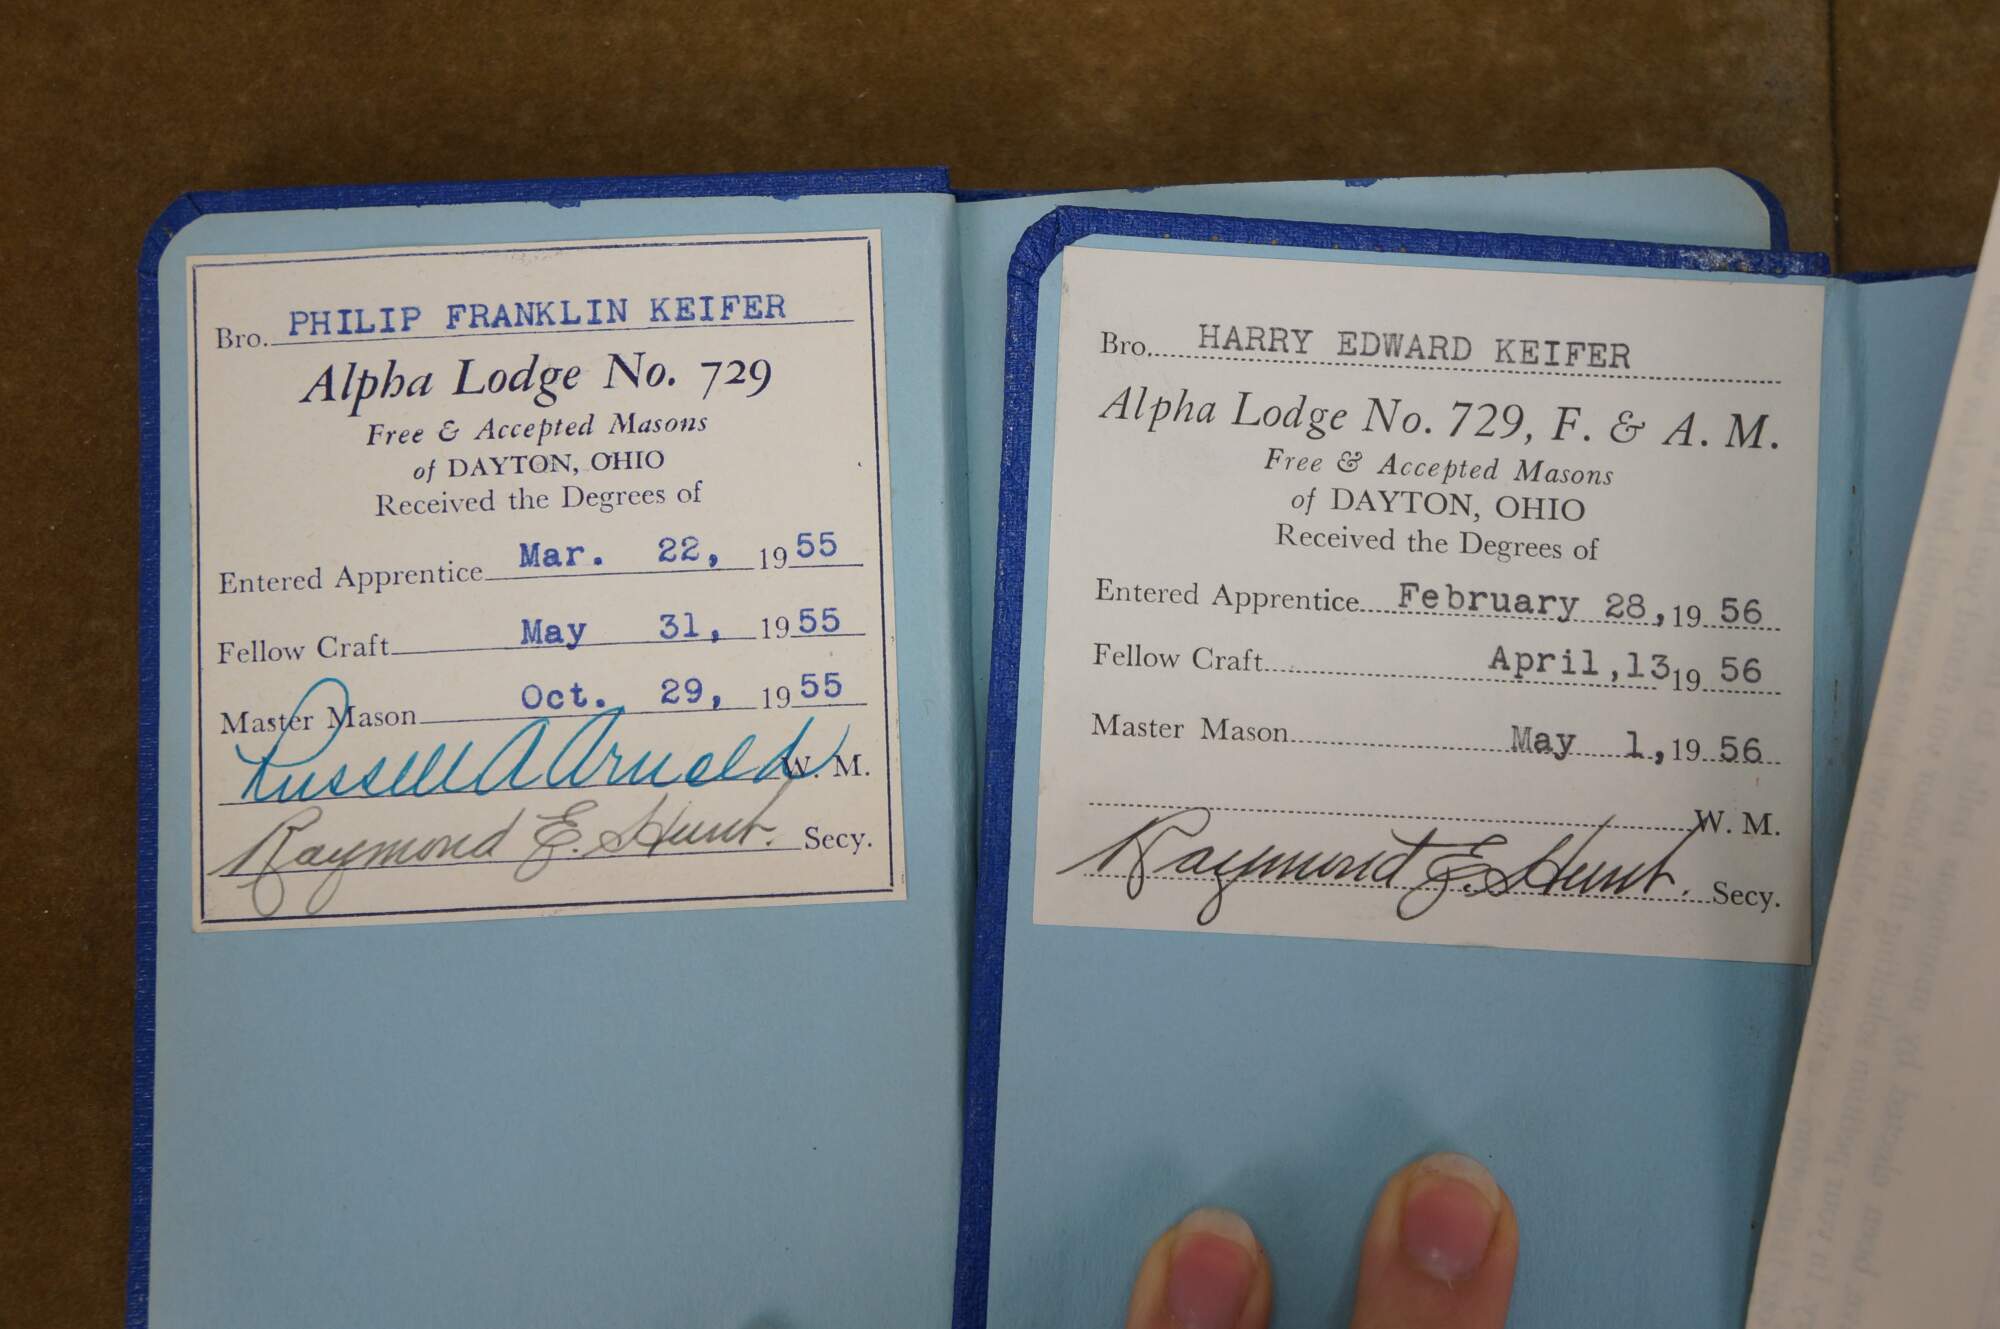 Bro. PHILIP FRANKLIN KEIFER
Alpha Lodge No. 729
Free & Accepted Masons
of DAYTON, OHIO
Received the Degrees of
Entered Apprentice Mar. 22, 1955
Fellow Craft May 31, 1955
Master Mason Oct. 29, 1955
Russell A Arnold W. M.
Raymond E. Hunt. Secy.
Bro. HARRY EDWARD KEIFER
Alpha Lodge No. 729, F. & A. M.
Free & Accepted Masons
of DAYTON, OHIO
Received the Degrees of
Entered Apprentice February 28, 1956
Fellow Craft April,13 1956
Master Mason May 1, 1956
W. M.
Raymond E. Hunt. Secy.